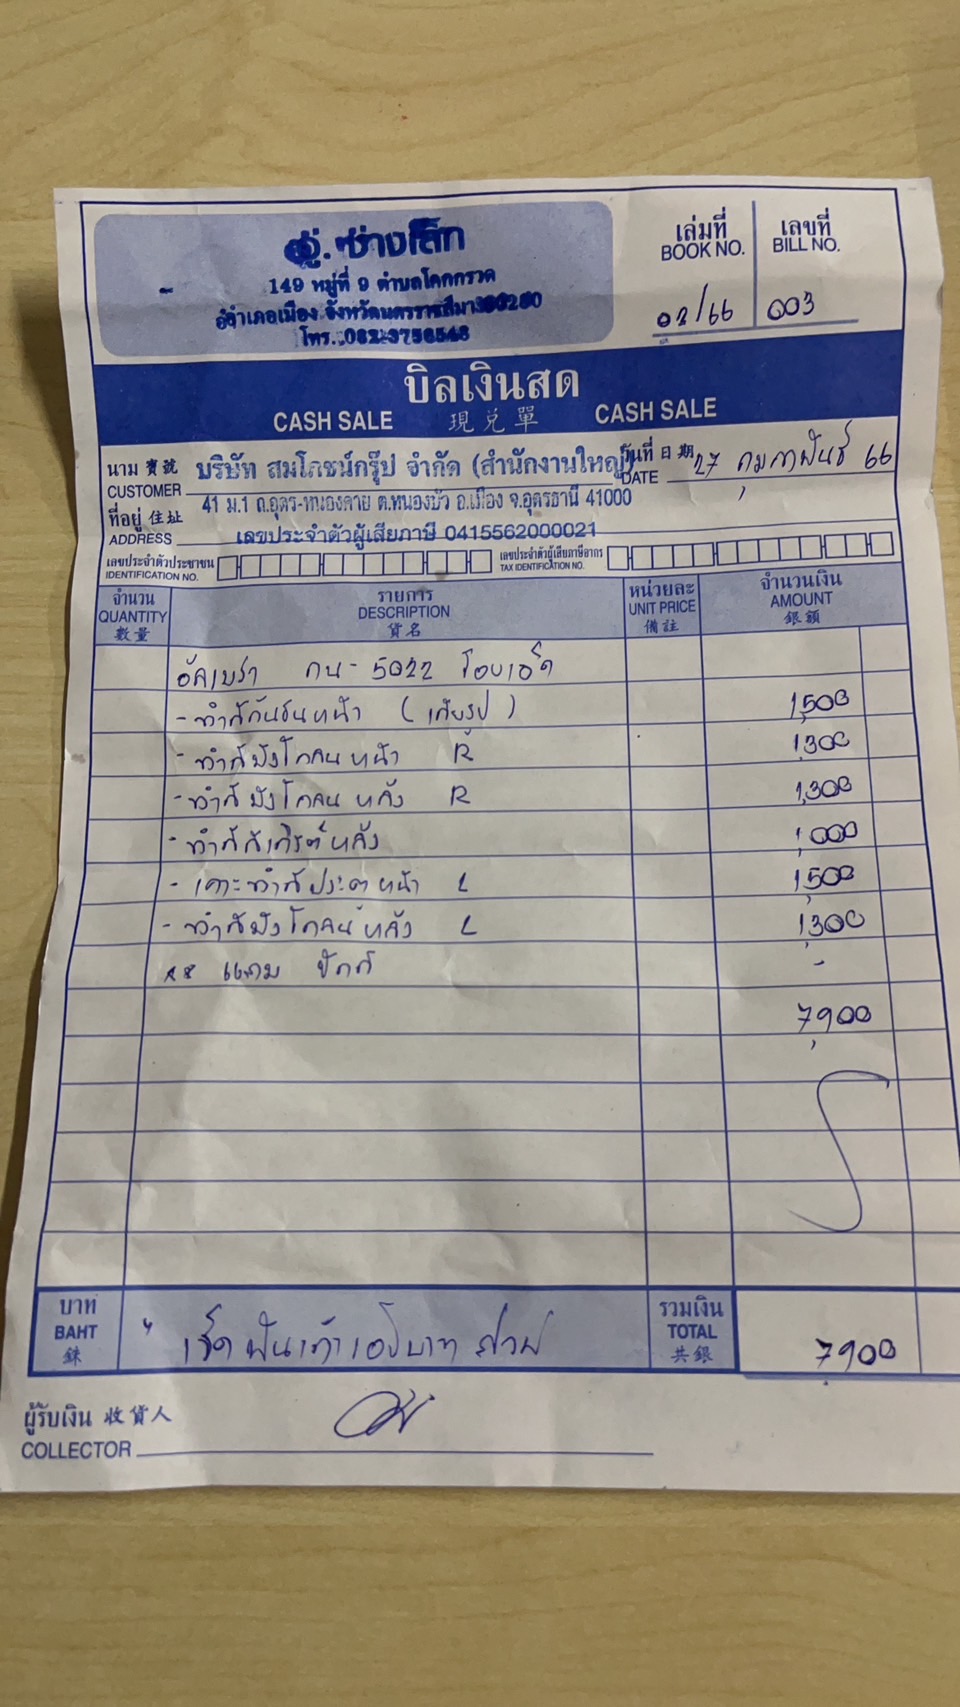 อู่.ช่างเล็ก
149 หมู่ที่ 9 ตำบลโคกกรวด
อำเภอเมือง จังหวัดนครราชสีมา
โทร.
เล่มที่
BOOK NO.
เลขที่
BILL NO.
02/66
003
บิลเงินสด
CASH SALE 現兌單 CASH SALE
นาม 寶號
CUSTOMER
บริษัท สมโภชน์กรุ๊ป จำกัด (สำนักงานใหญ่)
วันที่ 日期
DATE
27 กุมภาพันธ์ 66
ที่อยู่ 住址
ADDRESS
41 ม.1 ถ.อุดร-หนองคาย ต.หนองบัว อ.เมือง จ.อุดรธานี 41000
เลขประจำตัวผู้เสียภาษี 0415562000021
เลขประจำตัวประชาชน
IDENTIFICATION NO.
เลขประจำตัวผู้เสียภาษีอากร
TAX IDENTIFICATION NO.
จำนวน
QUANTITY
數量
รายการ
DESCRIPTION
貨名
หน่วยละ
UNIT PRICE
備註
จำนวนเงิน
AMOUNT
銀額
กน-5022
- ทำสีกันชนหน้า 1,500
- ทำสีบังโคลนหน้า R 1,300
- ทำสีบังโคลนหลัง R 1,300
- ทำสีสเกิร์ตหลัง 1,000
- เคาะทำสีประตูหน้า L 1,500
- ทำสีบังโคลนหลัง L 1,300
-
7,900
บาท
BAHT
銖
เจ็ดพันเก้าร้อยบาทถ้วน
รวมเงิน
TOTAL
共銀
7,900
ผู้รับเงิน 收貨人
COLLECTOR